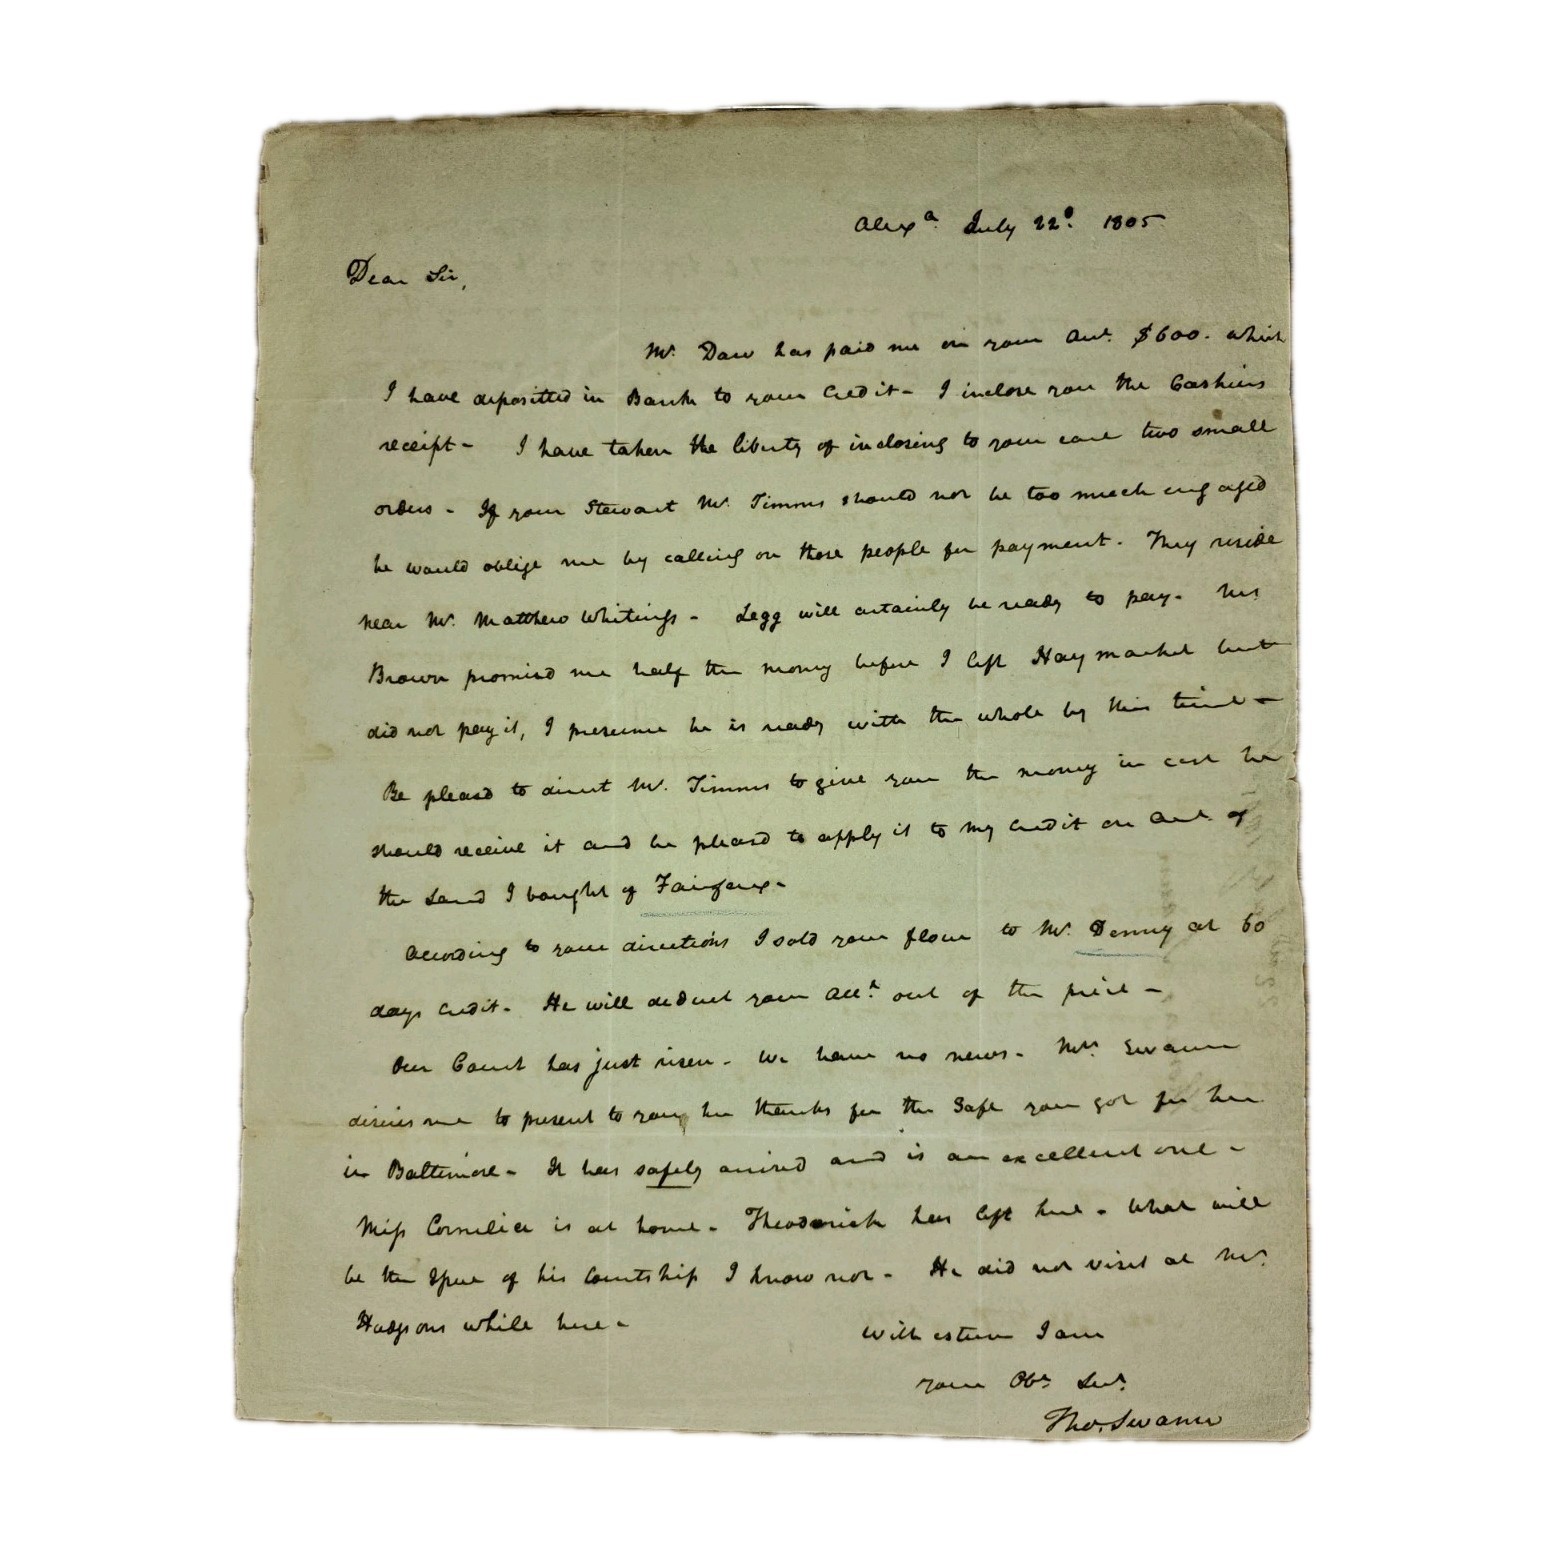 Alexa. July 22d. 1805
Dear Sir,
Mr. Daw has paid me on your Acct. $600. which
I have depositted in Bank to your Credit - I inclose you the Cashiers
receipt - I have taken the liberty of inclosing to your care two small
orders - If your Stewart Mr. Timms should not be too much engaged
he would oblige me by calling on those people for payment. They reside
near Mr. Matthew Whitings - Legg will certainly be ready to pay.
Brown promised me half the money before I left Haymarket but
did not pay it, I presume he is ready with the whole by this time -
Be pleased to direct Mr. Timms to give you the money in case he
should receive it and be pleased to apply it to my credit on Acct. of
the Land I bought of Fairfax -
According to your directions I sold your flour to Mr. Denny at 60
days credit - He will deduct your Acct. out of the price -
Our Court has just risen - We have no news - Mrs. Swann
desires me to present to you her thanks for the Safe you got for her
in Baltimore - It has safely arrived and is an excellent one -
Miss Cornelia is at home - Theoderick has left here - What will
be the Issue of his Courtship I know not - He did not visit at Mr.
Hodgsons while here -
With esteem I am
your Obt. Sert.
Tho. Swann